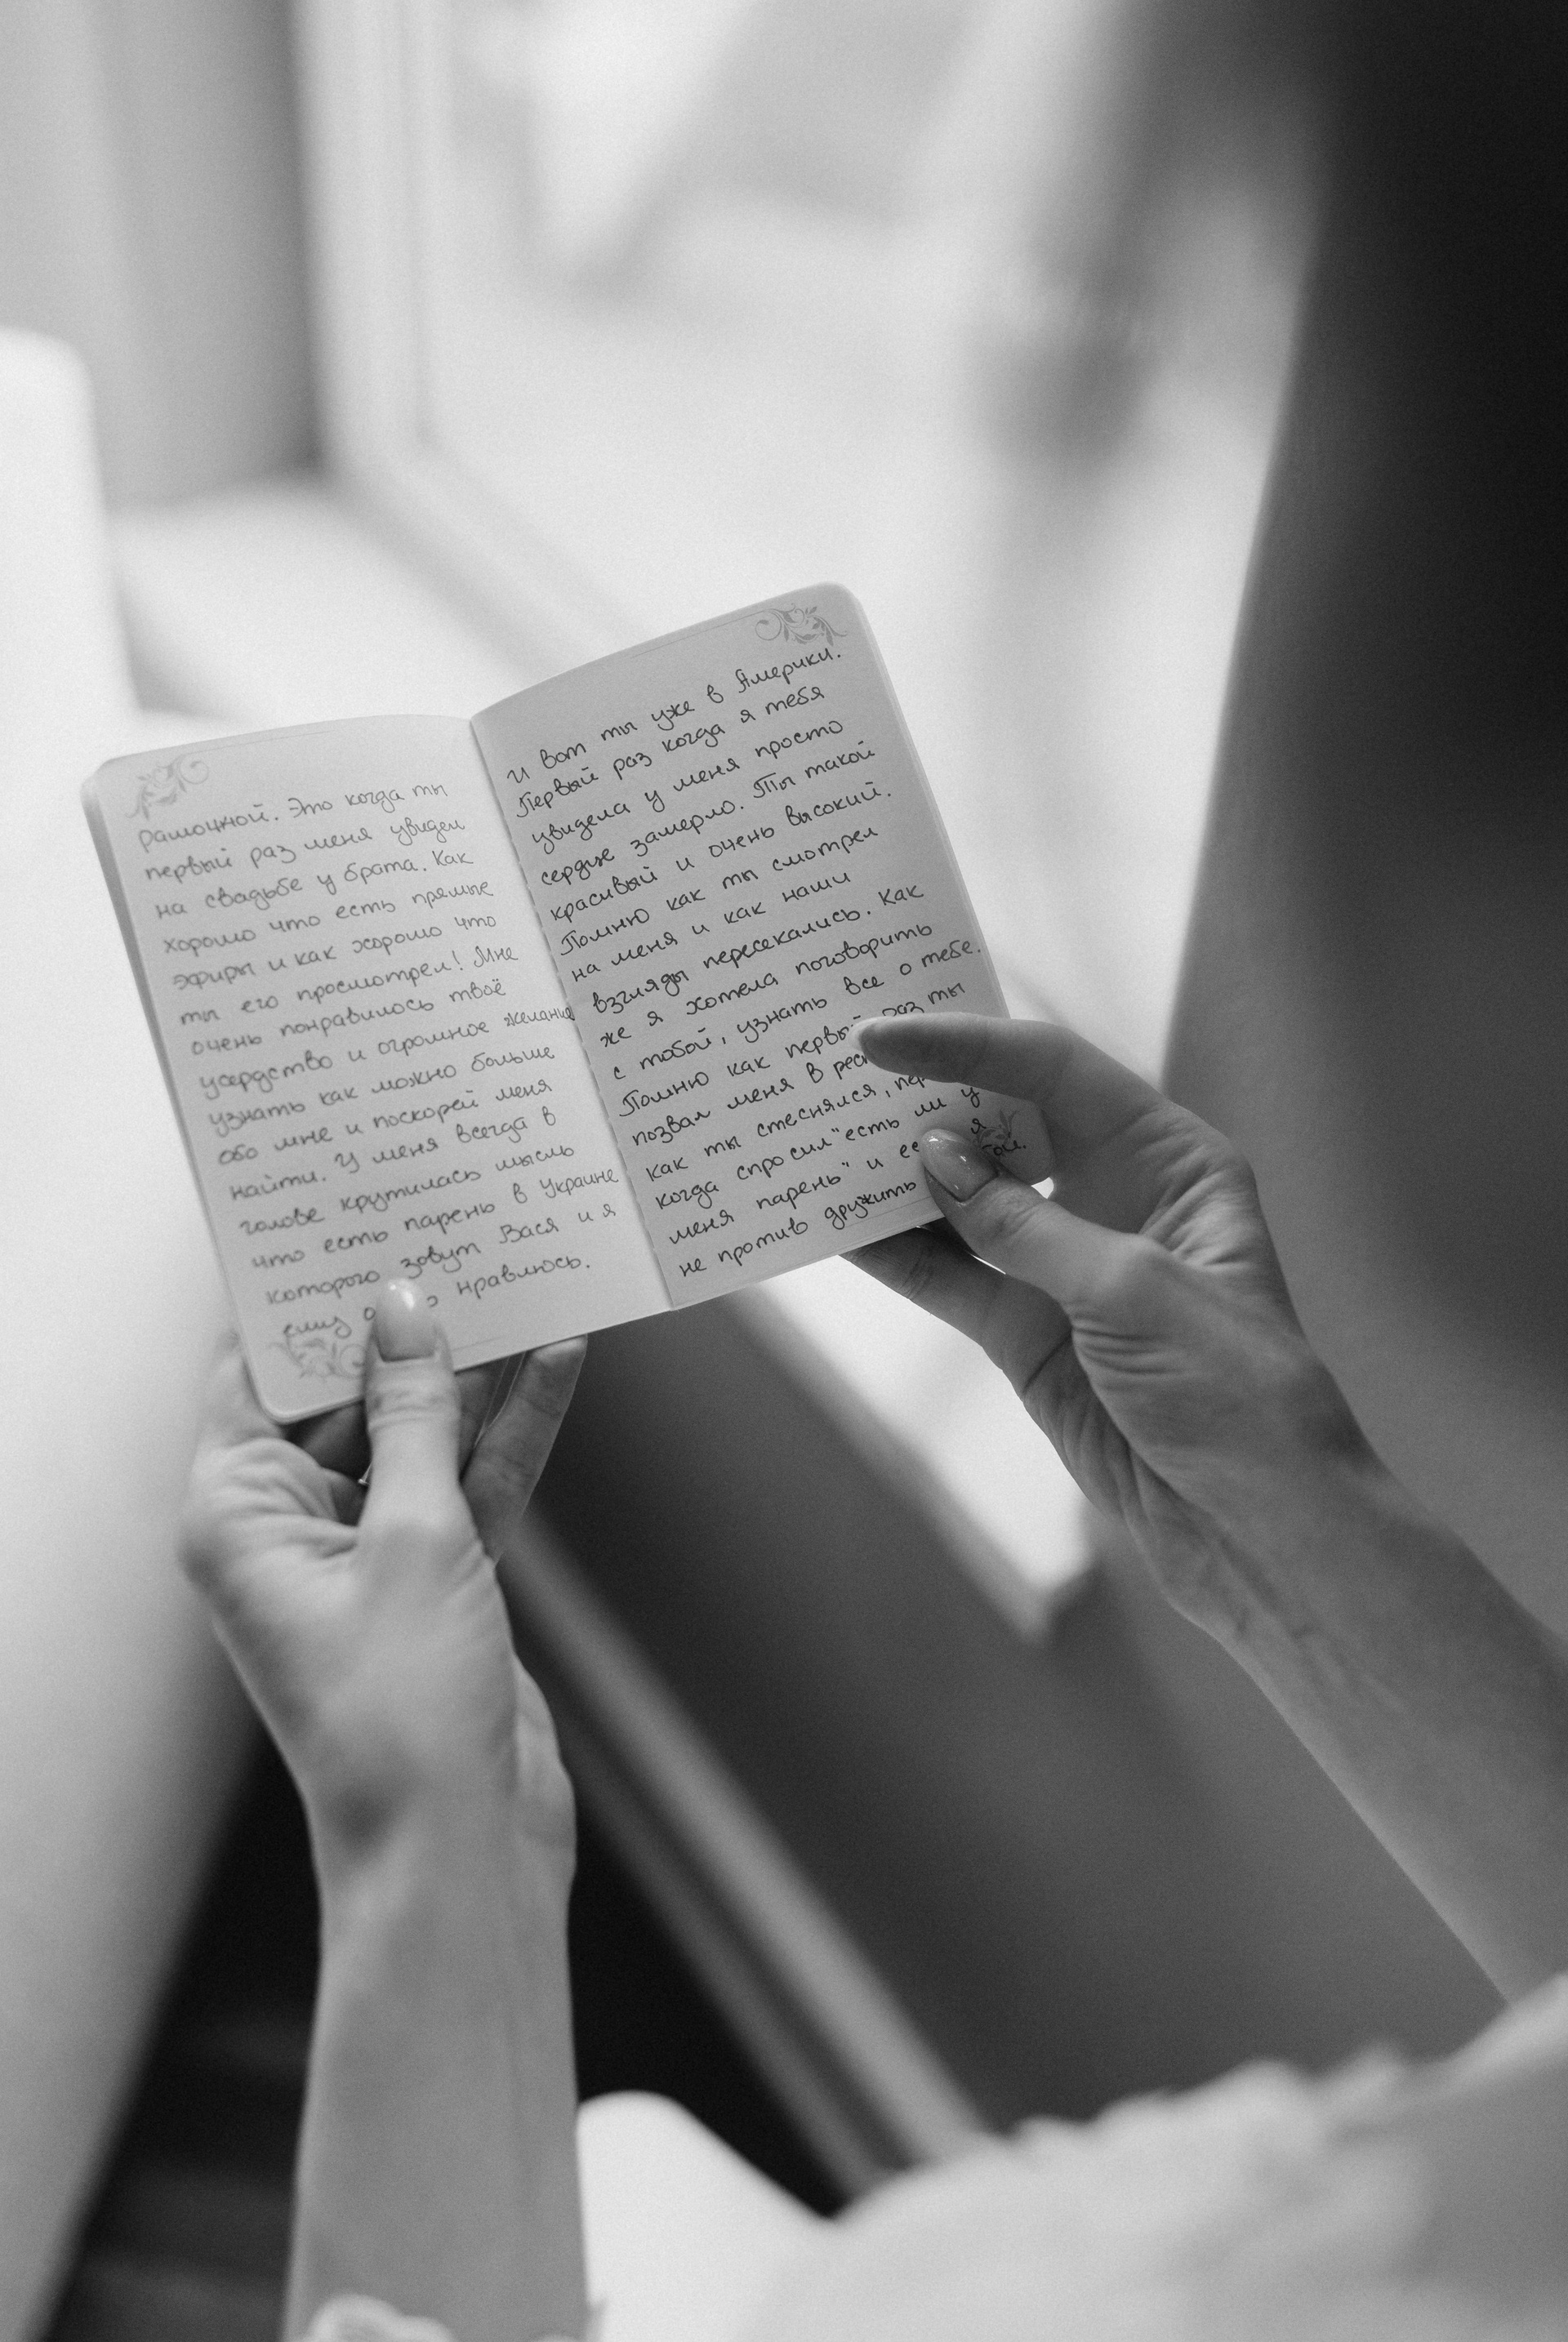 рашоцной. Это когда ты
первый раз меня увидел
на свадьбе у брата. Как
хорошо что есть прямые
эфиры и как хорошо что
ты его просмотрел! Мне
очень понравилось твоё
усердство и огромное желание
узнать как можно больше
обо мне и поскорей меня
найти. У меня всегда в
голове крутилась мысль
что есть парень в Украине
которого зовут Вася и я
ему нравлюсь.
И вот ты уже в Америки.
Первый раз когда я тебя
увидела у меня просто
сердце замерло. Ты такой
красивый и очень высокий.
Помню как ты смотрел
на меня и как наши
взгляды пересекались. Как
же я хотела поговорить
с тобой, узнать все о тебе.
Помню как первый раз ты
позвал меня в
как ты стеснялся,
когда спросил "есть ли у
меня парень" и я
не против дружить